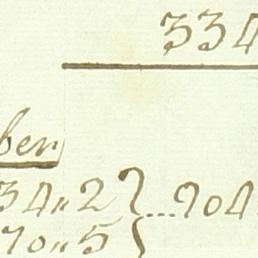 334
ber
34〃2 } ...904
70〃5